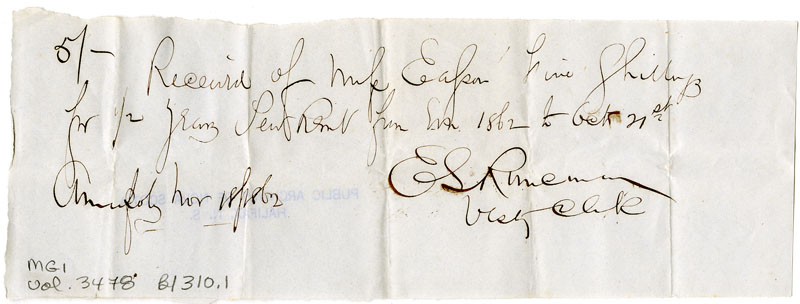 5/-
Received of Miss Easson Five Shillings
for 1/2 Years Pew Rent from 1862 to Oct 21st
Annapolis Nov 18/1862
E S
Vestry Clerk
PUBLIC ARCHIVES
HALIFAX, N. S.
MG1
Vol. 3478 B/310.1